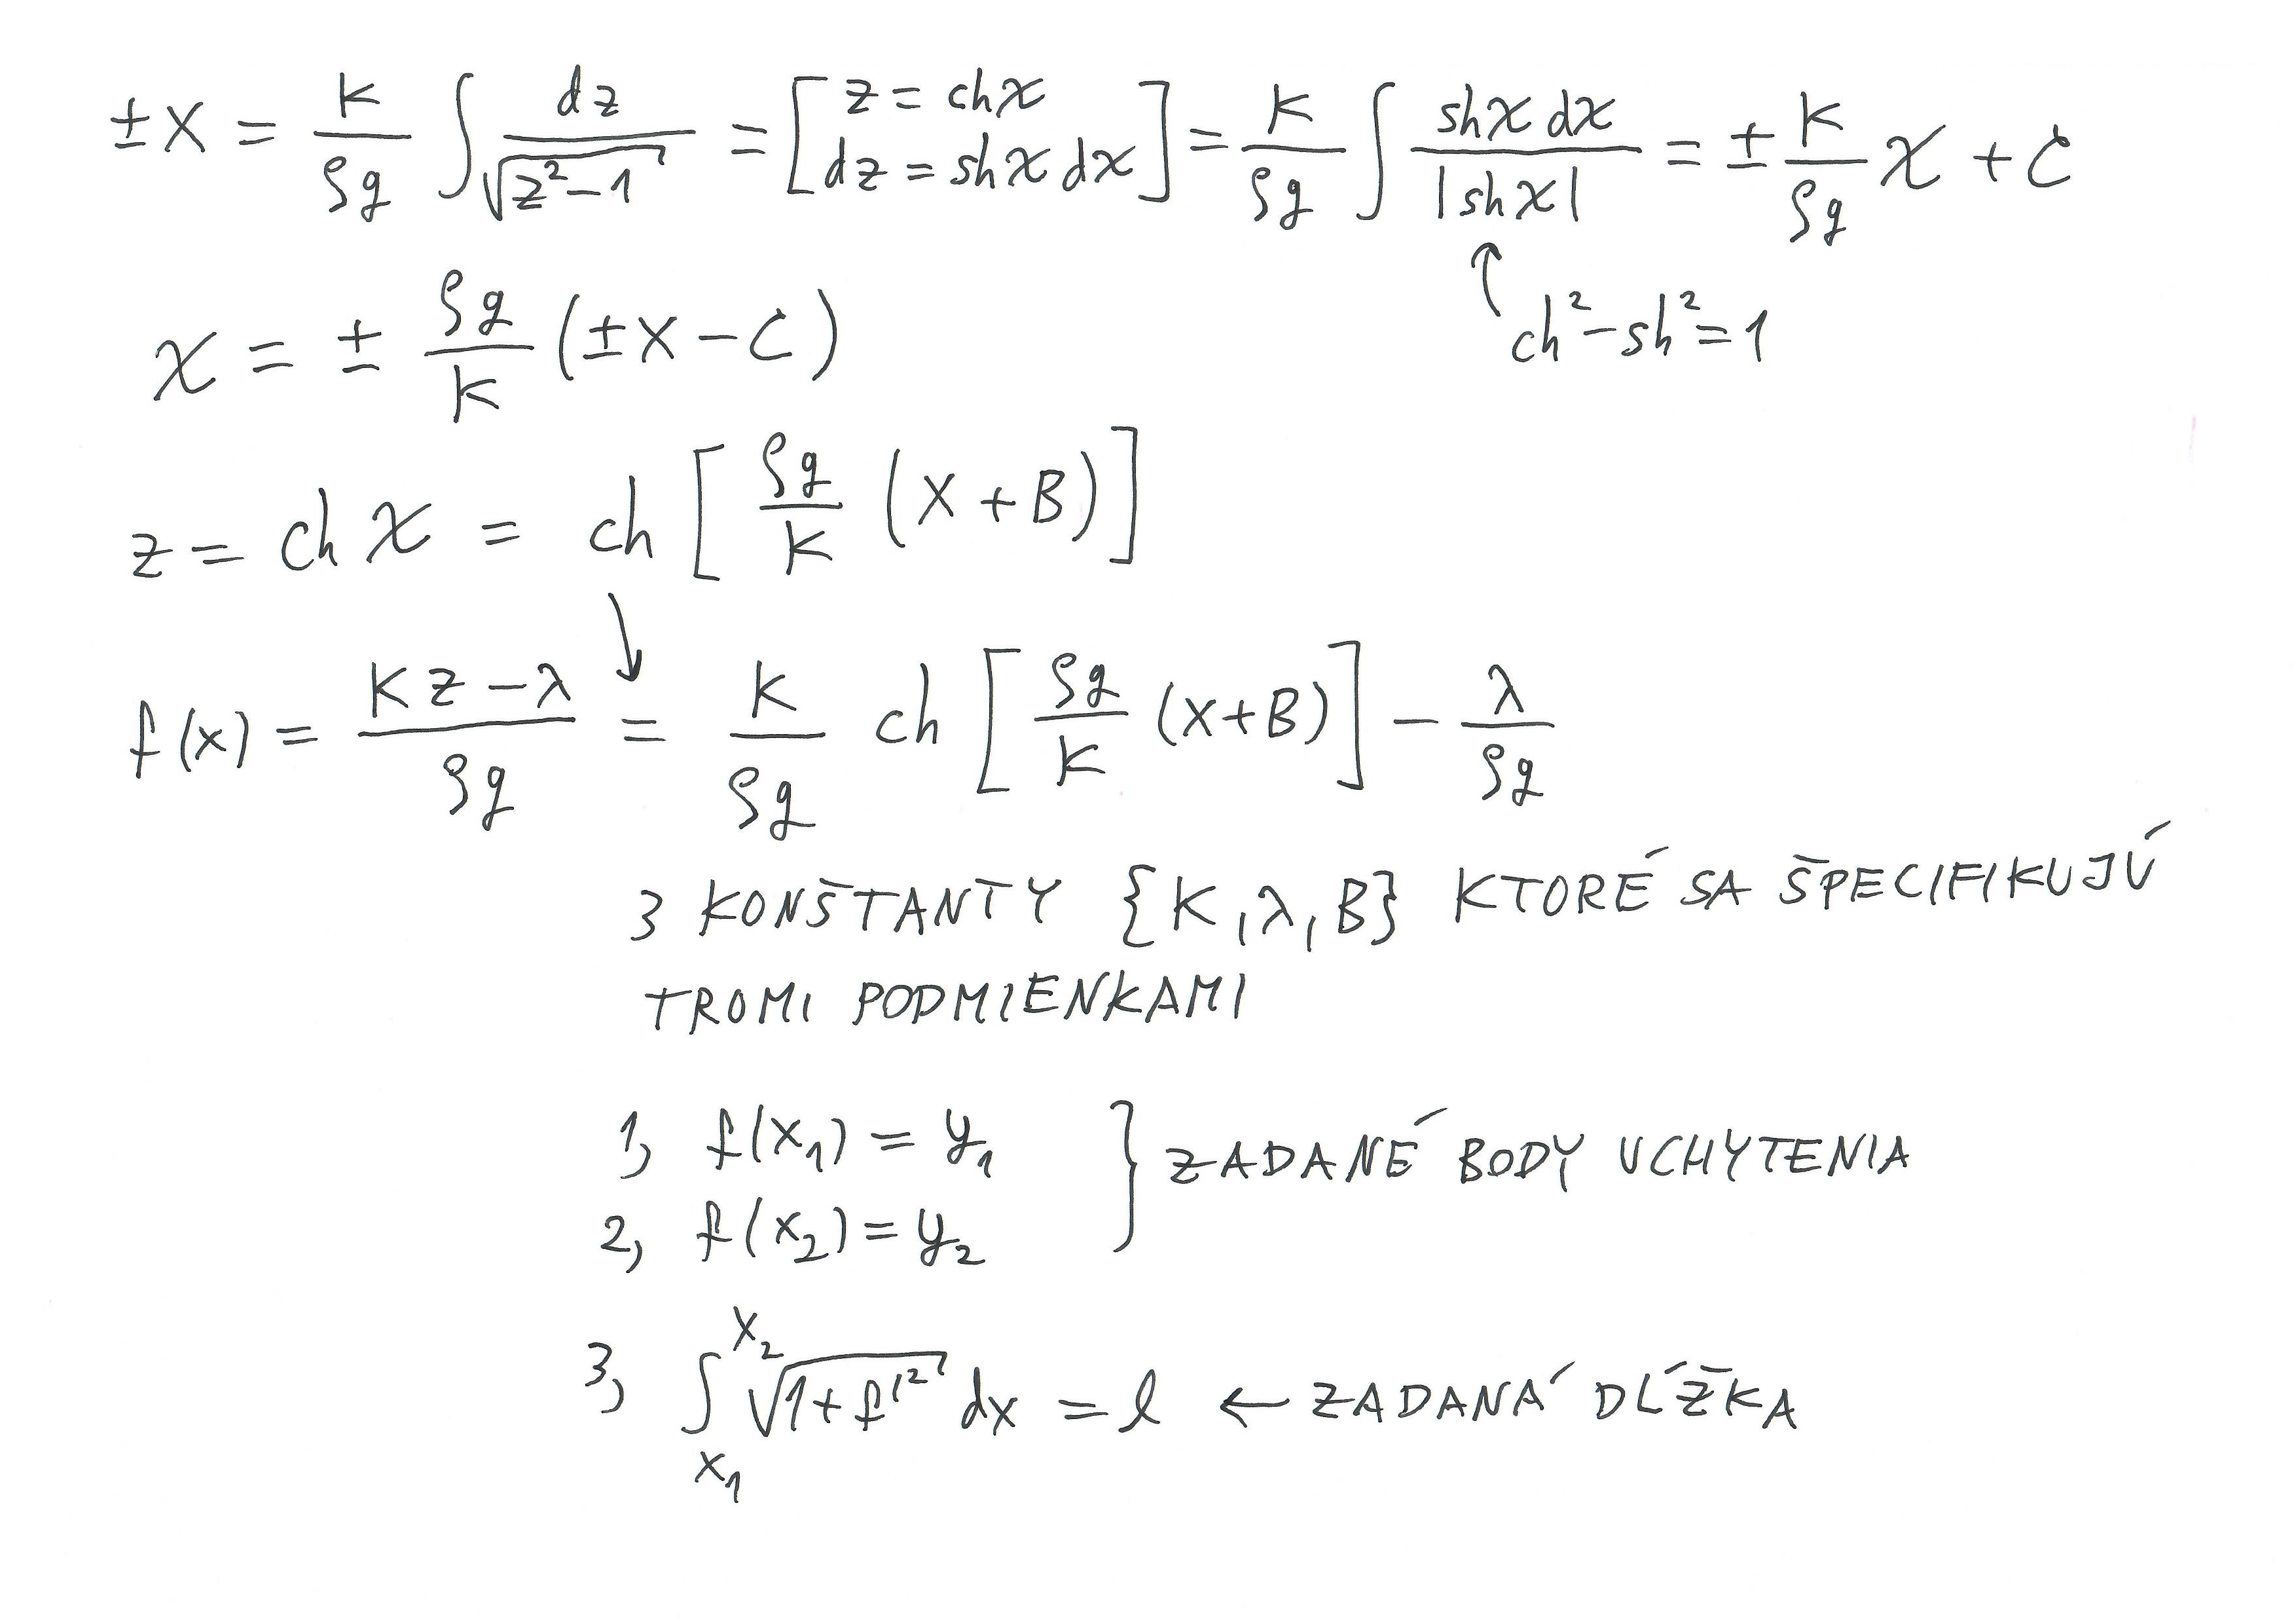 ±x = K/ρg ∫ dz/√(z²-1) = [z = chχ dz = shχ dχ] = K/ρg ∫ shχ dχ/|shχ| = ± K/ρg χ + C
↑ ch²-sh²=1
χ = ± ρg/K (±x-C)
z = ch χ = ch [ρg/K (x+B)]
↓
f(x) = Kz-λ/ρg = K/ρg ch [ρg/K (x+B)] - λ/ρg
3 KONŠTANTY {K,λ,B} KTORÉ SA ŠPECIFIKUJÚ
TROMI PODMIENKAMI
1, f(x₁) = y₁
} ZADANÉ BODY UCHYTENIA
2, f(x₂) = y₂
3, ∫ₓ₁ˣ² √(1+f'²) dx = l ← ZADANÁ DĹŽKA